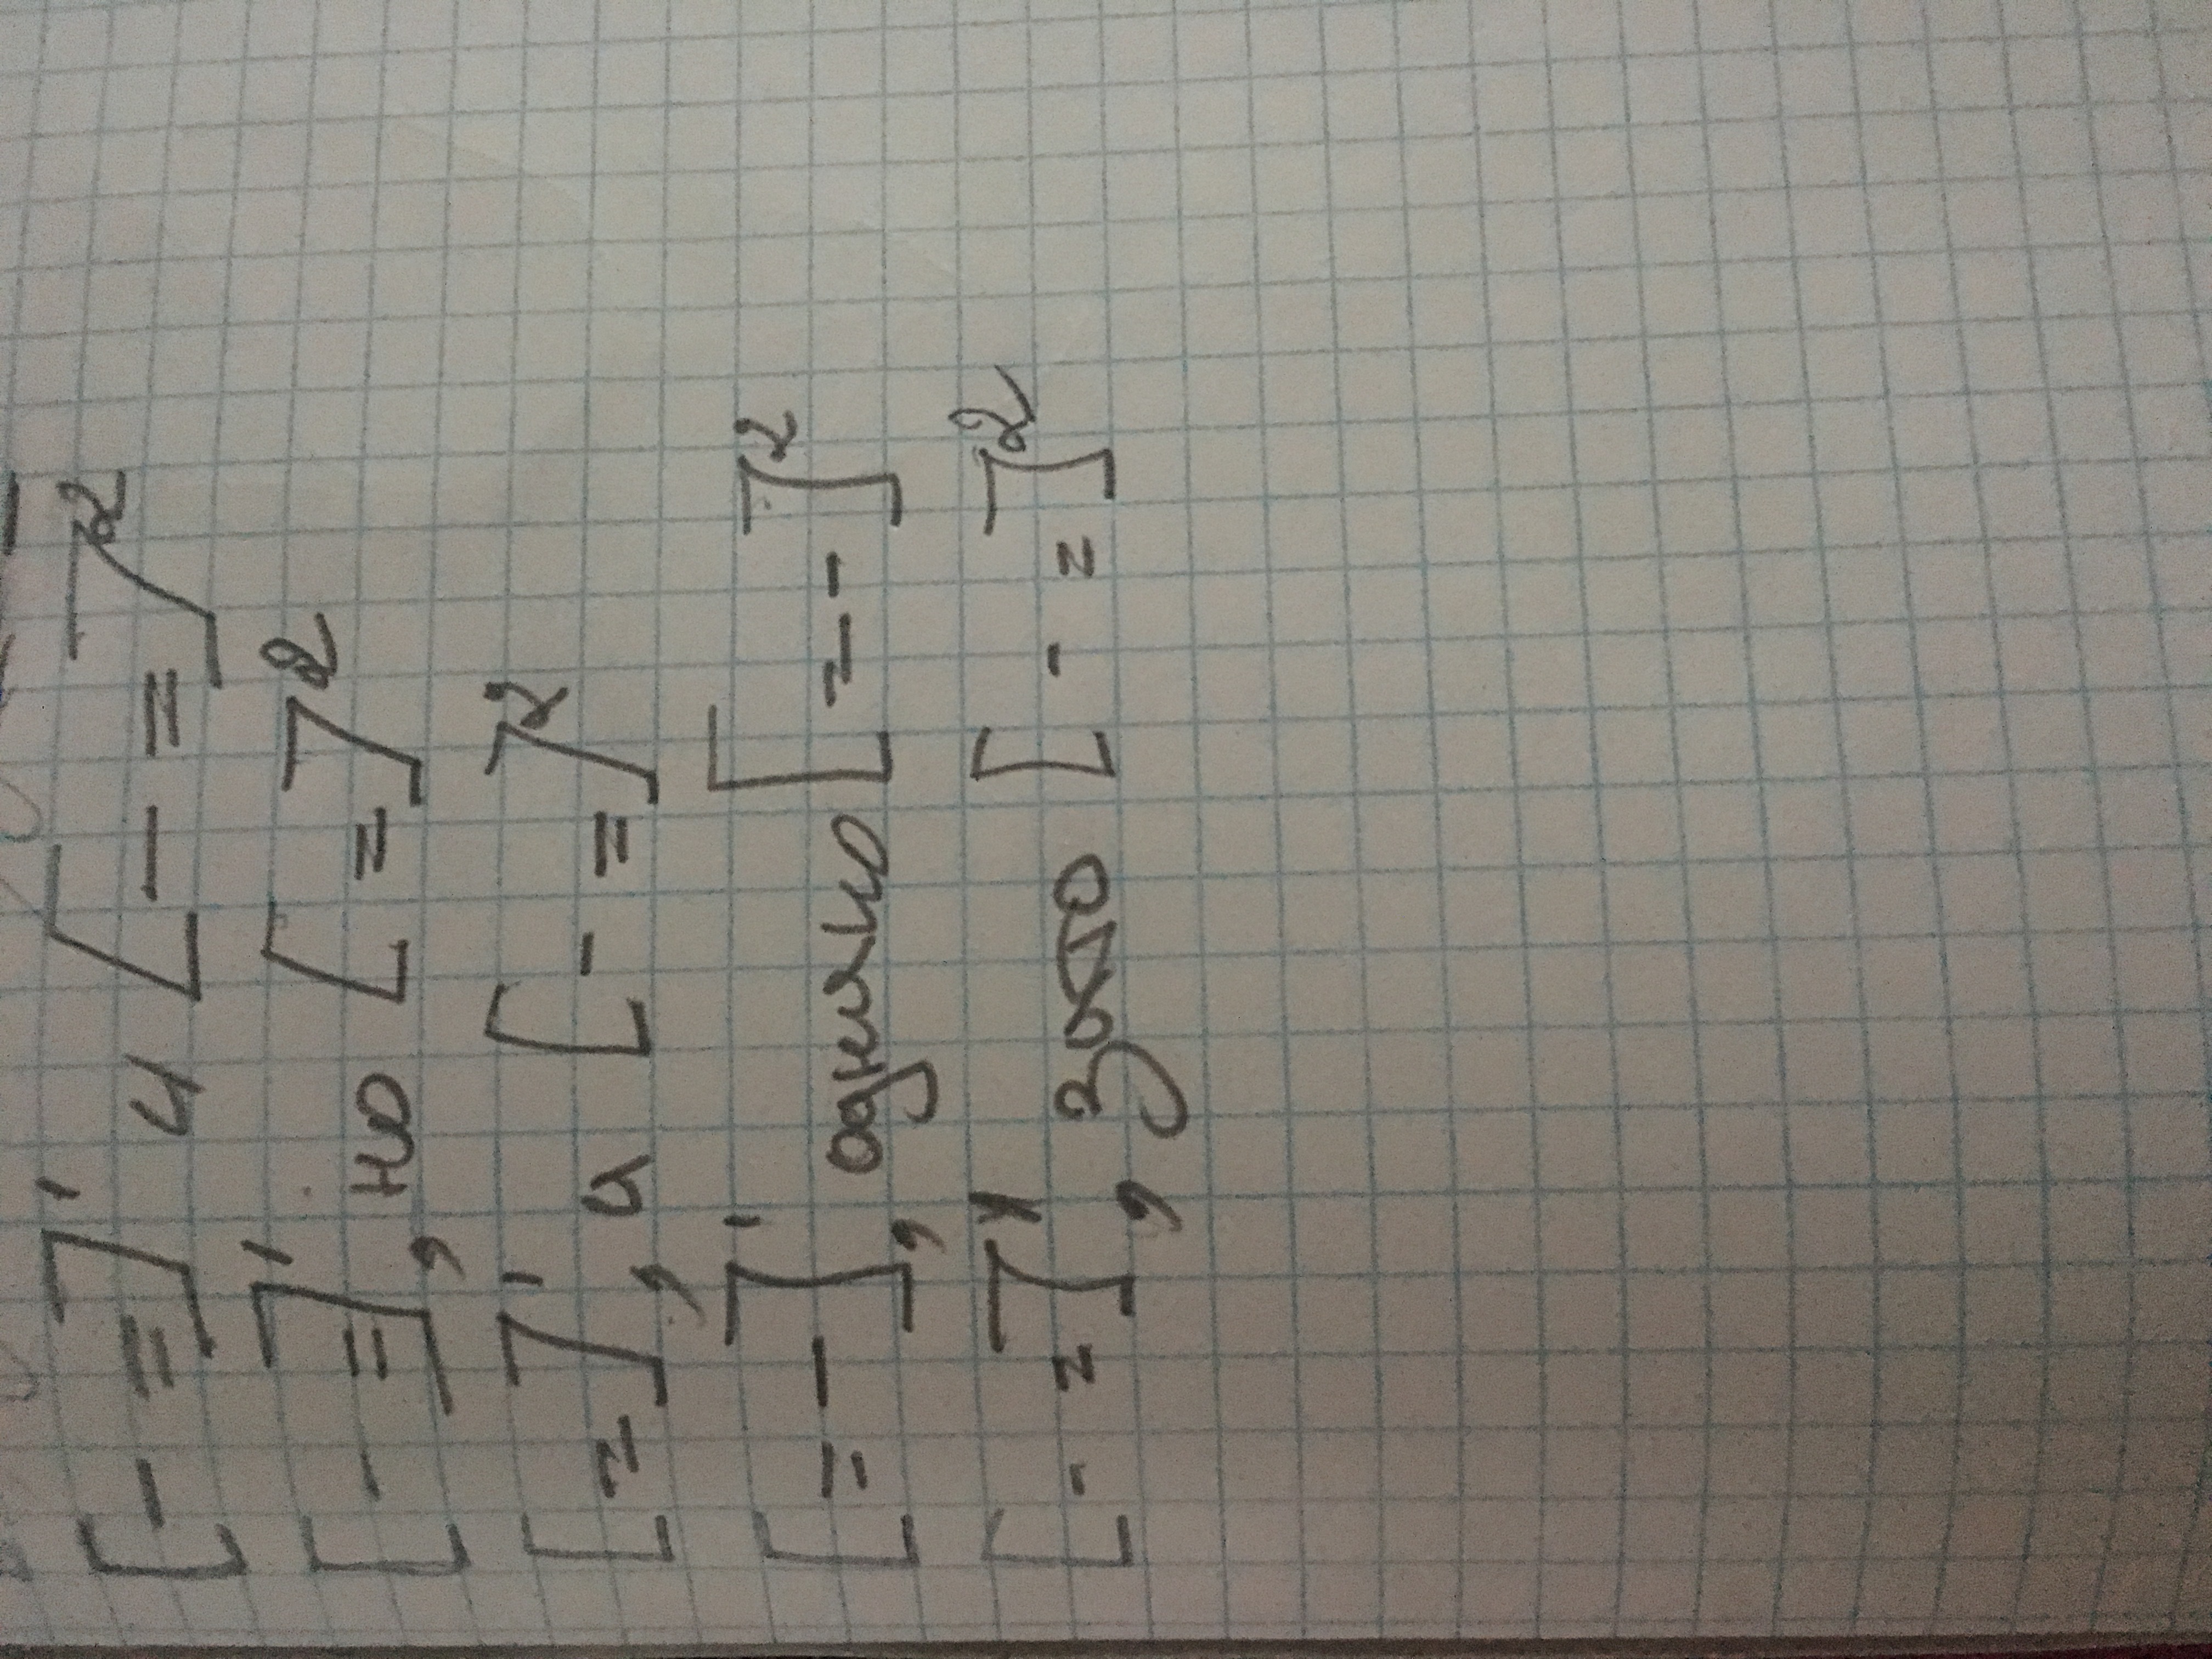 [— =]¹ и [— =]²
[— =]¹, но [=]²
[=]¹, а [- =]²
[= —]¹, однако [= — -]²
[- =]¹, зато [- =]²